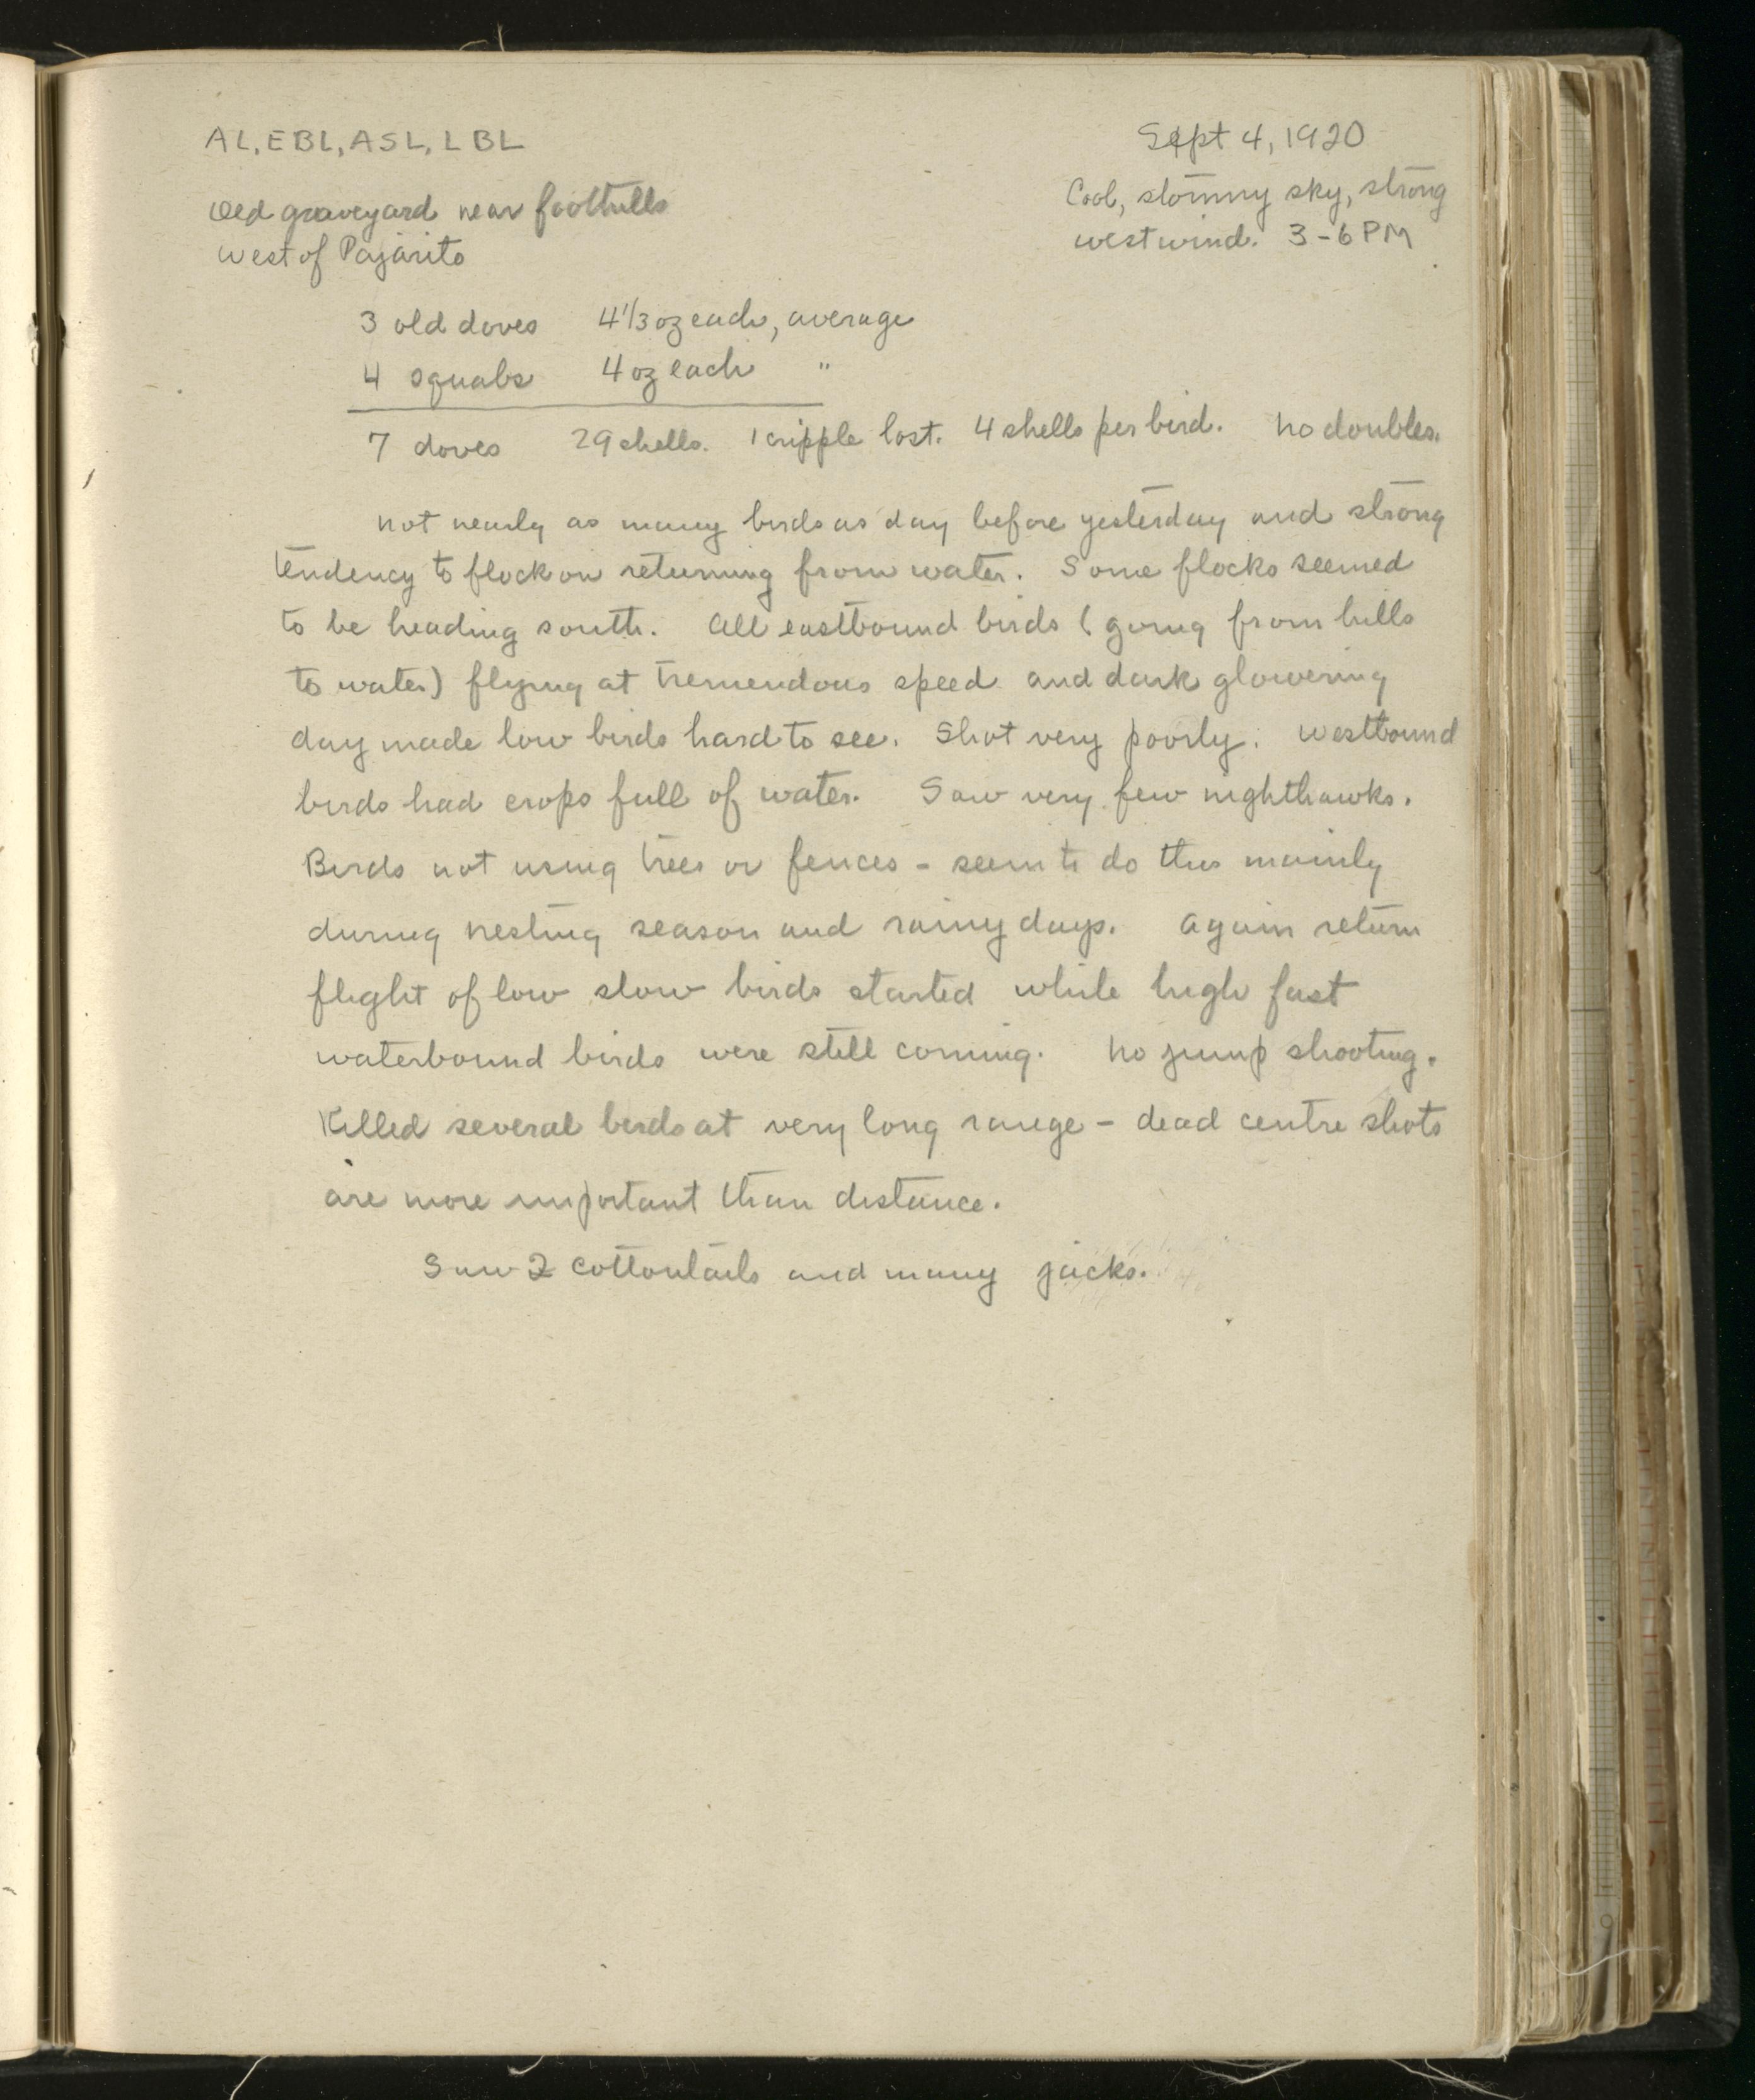 AL, EBL, ASL, LBL
Sept 4, 1920
Old graveyard near foothills
west of Pajarito
Cool, stormy sky, strong
west wind. 3-6 PM
3 old doves 4 1/3 oz each, average
4 squabs 4 oz each "
7 doves 29 shells. 1 cripple lost. 4 shells per bird. No doubles.
Not nearly as many birds as day before yesterday and strong
tendency to flock on returning from water. Some flocks seemed
to be heading south. All eastbound birds (going from hills
to water) flying at tremendous speed and dark glowering
day made low birds hard to see. Shot very poorly. Westbound
birds had crops full of water. Saw very few nighthawks.
Birds not using trees or fences - seem to do this mainly
during nesting season and rainy days. Again return
flight of low slow birds started while high fast
waterbound birds were still coming. No jump shooting.
Killed several birds at very long range - dead centre shots
are more important than distance.
Saw 2 cottontails and many jacks.